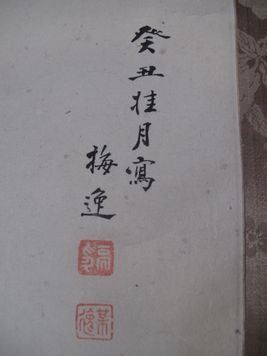 癸丑壯月寫
梅逸